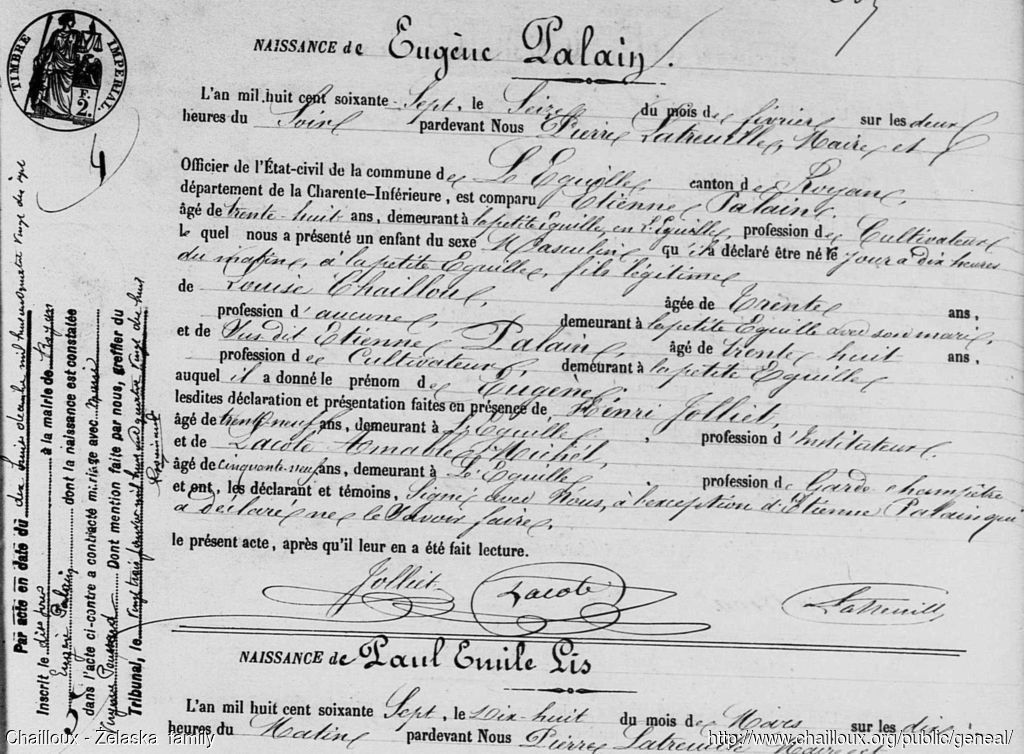 TIMBRE IMPERIAL
F. 2.
4
NAISSANCE de Eugène Palain.
L'an mil huit cent soixante-Sept, le Seize du mois de février sur les deux
heures du Soir pardevant Nous Pierre Latreuille, Maire et
Officier de l'État-civil de la commune de L'Eguille, canton de Royan,
département de la Charente-Inférieure, est comparu Etienne Palain,
âgé de trente-huit ans, demeurant à la petite Eguille, en L'Eguille, profession de Cultivateur
Le quel nous a présenté un enfant du sexe Masculin qu'il a déclaré être né le jour à dix heures
du matin, à la petite Eguille, fils légitime
de Louise Chailloux, âgée de Trente ans,
profession d'aucune, demeurant à la petite Eguille avec son mari,
et de Susdit Etienne Palain, âgé de trente-huit ans,
profession de Cultivateur, demeurant à la petite Eguille
auquel il a donné le prénom de Eugène,
lesdites déclaration et présentation faites en présence de Henri Jolliet,
âgé de trente neuf ans, demeurant à L'Eguille, profession d'Instituteur.
et de Lacote Amable Michel,
âgé de cinquante-neuf ans, demeurant à L'Eguille profession de Garde-champêtre
et ont, les déclarant et témoins, Signé avec Nous, à l'exception d'Etienne Palain qui
a déclaré ne le Savoir faire,
le présent acte, après qu'il leur en a été fait lecture.
Jolliet Lacote Latreuille
Par acte en date du dix huit décembre mil huit cent quatre vingt dix sept
Inscrit le dit jour à la mairie de Royan
Eugène Palain dont la naissance est constatée
dans l'acte ci-contre a contracté mariage avec
Dont mention faite par nous, greffier du
Tribunal, le vingt trois janvier mil huit cent quatre vingt dix huit
NAISSANCE de Paul Emile Lis
L'an mil huit cent soixante Sept, le Dix-huit du mois de Mars sur les dix
heures du Matin pardevant Nous Pierre Latreuille
Chailloux - Zelaska family
http://www.chailloux.org/public/geneal/